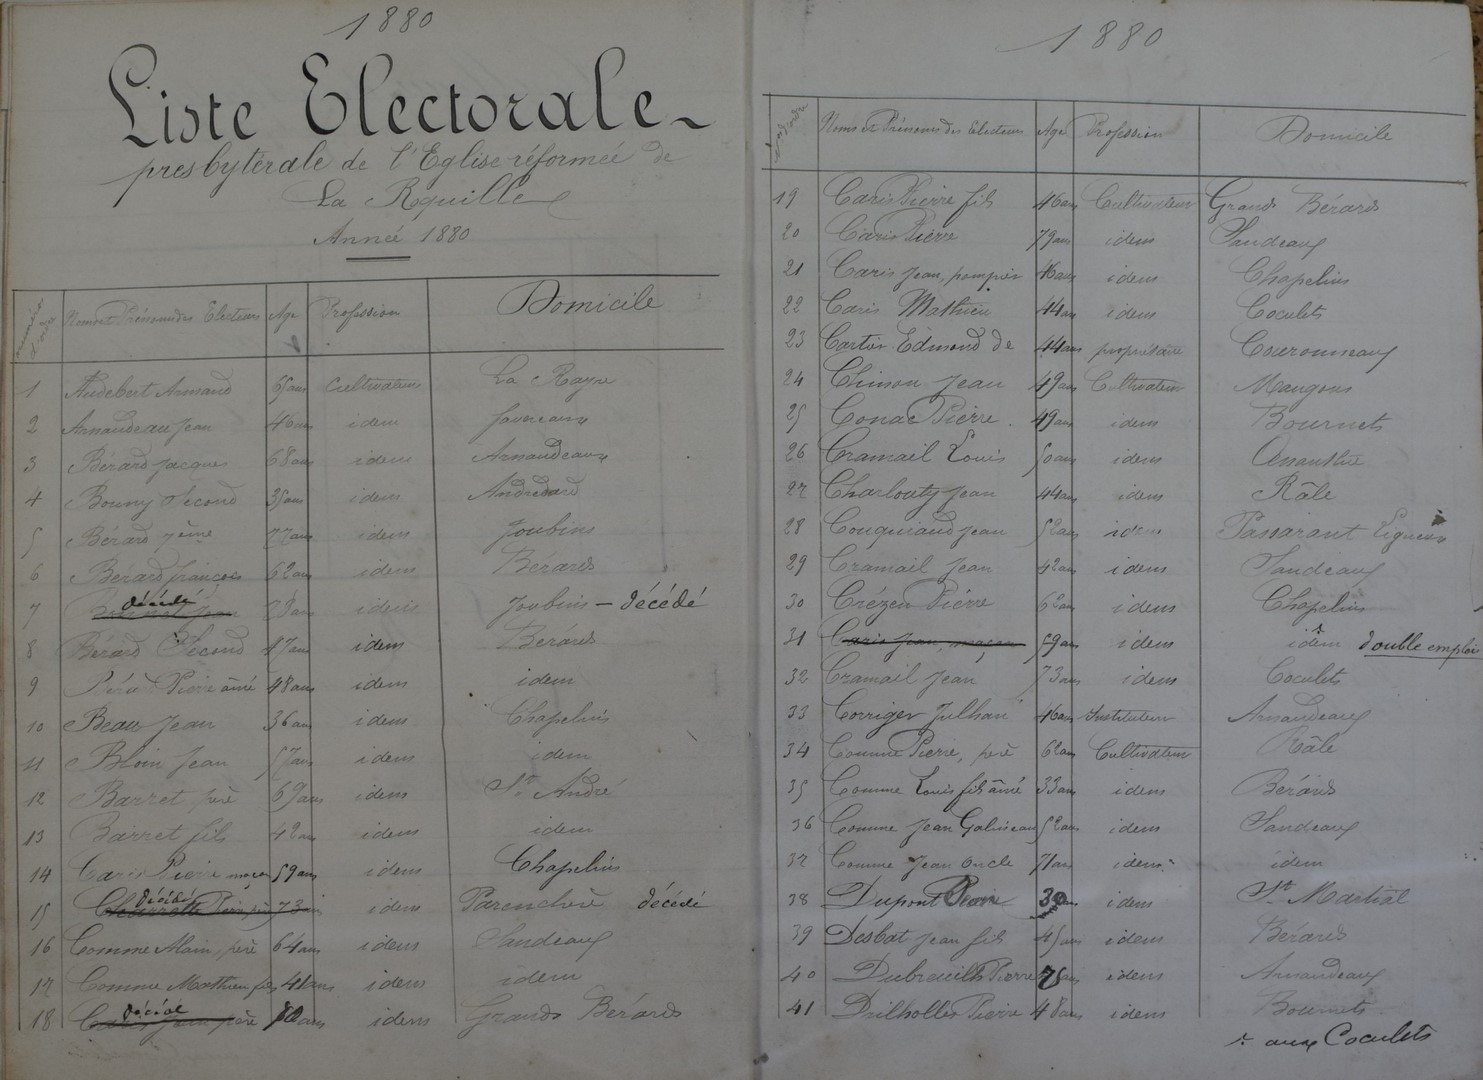 1880
Liste Electorale
presbytérale de l'Eglise réformée de
La Roquille
Année 1880
numéros d'ordre Noms et Prénoms des Electeurs Age Profession Domicile
1 Audebert Armand 65 ans Cultivateur La Raye
2 Arnaudeau Jean 46 ans idem Favreaux
3 Bérard Jacques 68 ans idem Arnaudeaux
4 Bouny Second 35 ans idem
5 Bérard 77 ans idem Joubins
6 Bérard François 62 ans idem Bérards
7 décédé Jean 79 ans idem Joubins – décédé
8 Bérard Second 47 ans idem Berards
9 Pierre âiné 48 ans idem idem
10 Beau Jean 36 ans idem Chapelins
11 Bloin Jean 57 ans idem idem
12 Barret père 69 ans idem St André
13 Barret fils 42 ans idem idem
14 Caris Pierre maçon 59 ans idem Chapelins
15 décédé Charrette père 73 idem Parenchère décédé
16 Comme Alain, père 64 ans idem Sandeaux
17 Comme Mathieu fils 41 ans idem idem
18 décédé Jean père ans idem Grands Bérards
1880
Nos d'ordre Noms et Prénoms des Electeurs Age Profession Domicile
19 Caris Pierre fils 46 ans Cultivateur Grands Bérards
20 Caris Pierre 79 ans idem Sandeaux
21 Caris Jean, pompier 46 ans idem Chapelins
22 Caris Mathieu 44 ans idem Coculets
23 Carter Edmond de 44 ans propriétaire Couronneaux
24 Chinon Jean 49 ans Cultivateur Maugons
25 Conac Pierre. 49 ans idem Bournets
26 Cramail Louis 50 ans idem
27 Charlouty Jean 44 ans idem Râle
28 Couquiaud Jean 52 ans idem Passarant
29 Cramail Jean 42 ans idem Sandeaux
30 Crézen Pierre 62 ans idem Chapelins
31 Caris Jean, maçon 59 ans idem idem double emploi
32 Cramail Jean 73 ans idem Coculets
33 Corriger Julhan 46 ans Instituteur Arnaudeaux
34 Comme Pierre, père 62 ans Cultivateur Râle
35 Comme Louis fils âiné 33 ans idem Bérards
36 Comme Jean Galineau 52 ans idem Sandeaux
37 Comme Jean oncle 71 ans idem idem
38 Dupont Pierre 30 ans idem St Martial
39 Desbat Jean fils 45 ans idem Bérards
40 Dubreuilh Pierre 75 ans idem Arnaudeaux
41 Drilholles Pierre 48 ans idem Bournets
aux Coculets